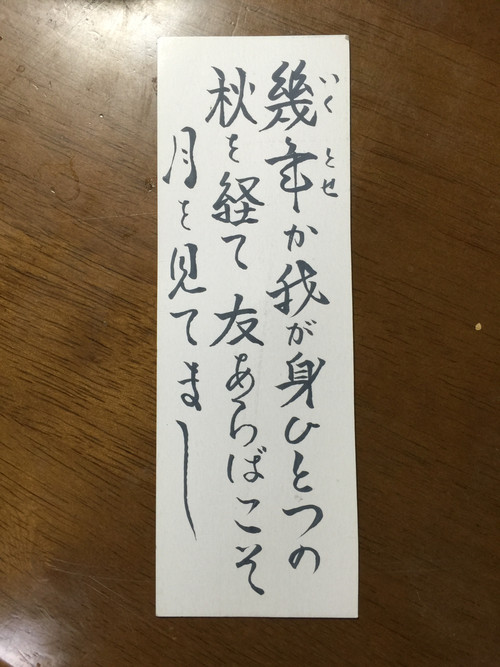 幾年か我が身ひとつの
いくとせ
秋を経て友あらばこそ
月を見てまし